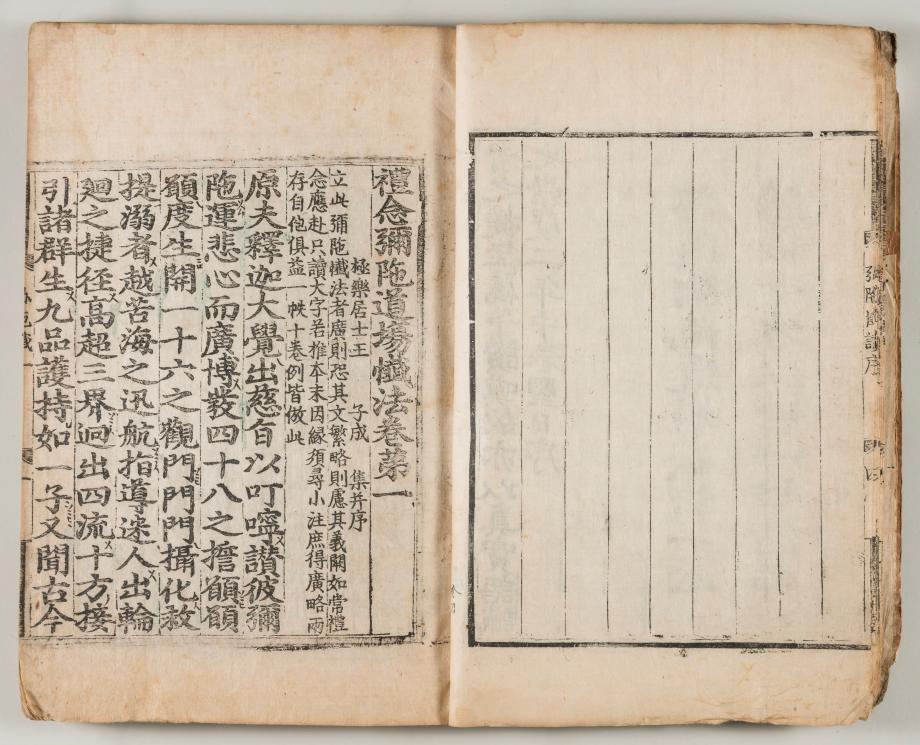 彌陁懺序
四
禮念彌陁道場懺法卷第一
極樂居士王 子成 集并序
立此彌陁懺法者廣則恐其文繁略則慮其義闕如常禮
念應赴只讀大字若推本末因緣須尋小注庶得廣略兩
存自他俱益一帙十卷例皆倣此
原夫釋迦大覺出慈旨以叮嚀讃彼彌
陁運悲心而廣博發四十八之擔願願
願度生開一十六之觀門門門攝化救
提溺者越苦海之迅航指導迷人出輪
廻之捷徑高超三界迥出四流十方接
引諸群生九品護持如一子又聞古今